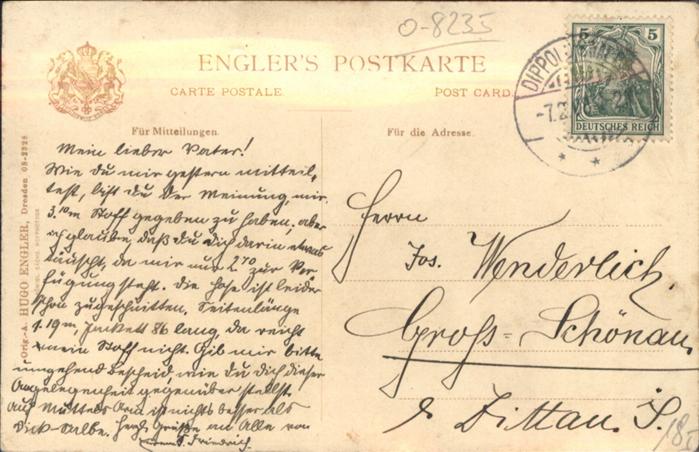 O-8235
ENGLER'S POSTKARTE
CARTE POSTALE. POST CARD.
Für Mitteilungen.
Für die Adresse.
5 5
DEUTSCHES REICH
DIPPOL
-7.2
Orig.-A. HUGO ENGLER, Dresden 08-2328
Mein lieber Vater!
Wie du mir gestern mitteil,
test, bist du der Meinung, mir
3.10m Stoff gegeben zu haben, aber
ich glaube, daß du dich darin etwas
täuscht, da mir nur 2.70 zur Ver-
fügung steht. Die Hose ist leider
schon zugeschnitten. Seitenlänge
1.19m, Jackett 86 lang, da reicht
mein Stoff nicht. Gib mir bitte
umgehend Bescheid, wie du dich dieser
Angelegenheit gegenüber stellst.
Auf Mutters Arm ist nichts besser als
Dick-Salbe. Herzl. Grüße an Alle von
Friedrich.
Herrn
Jos. Wenderlich.
Groß-Schönau
b Zittau. S.